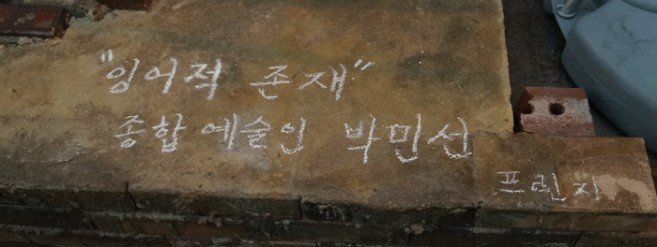 "잉어적 존재"
종합예술인 박민선
프린지